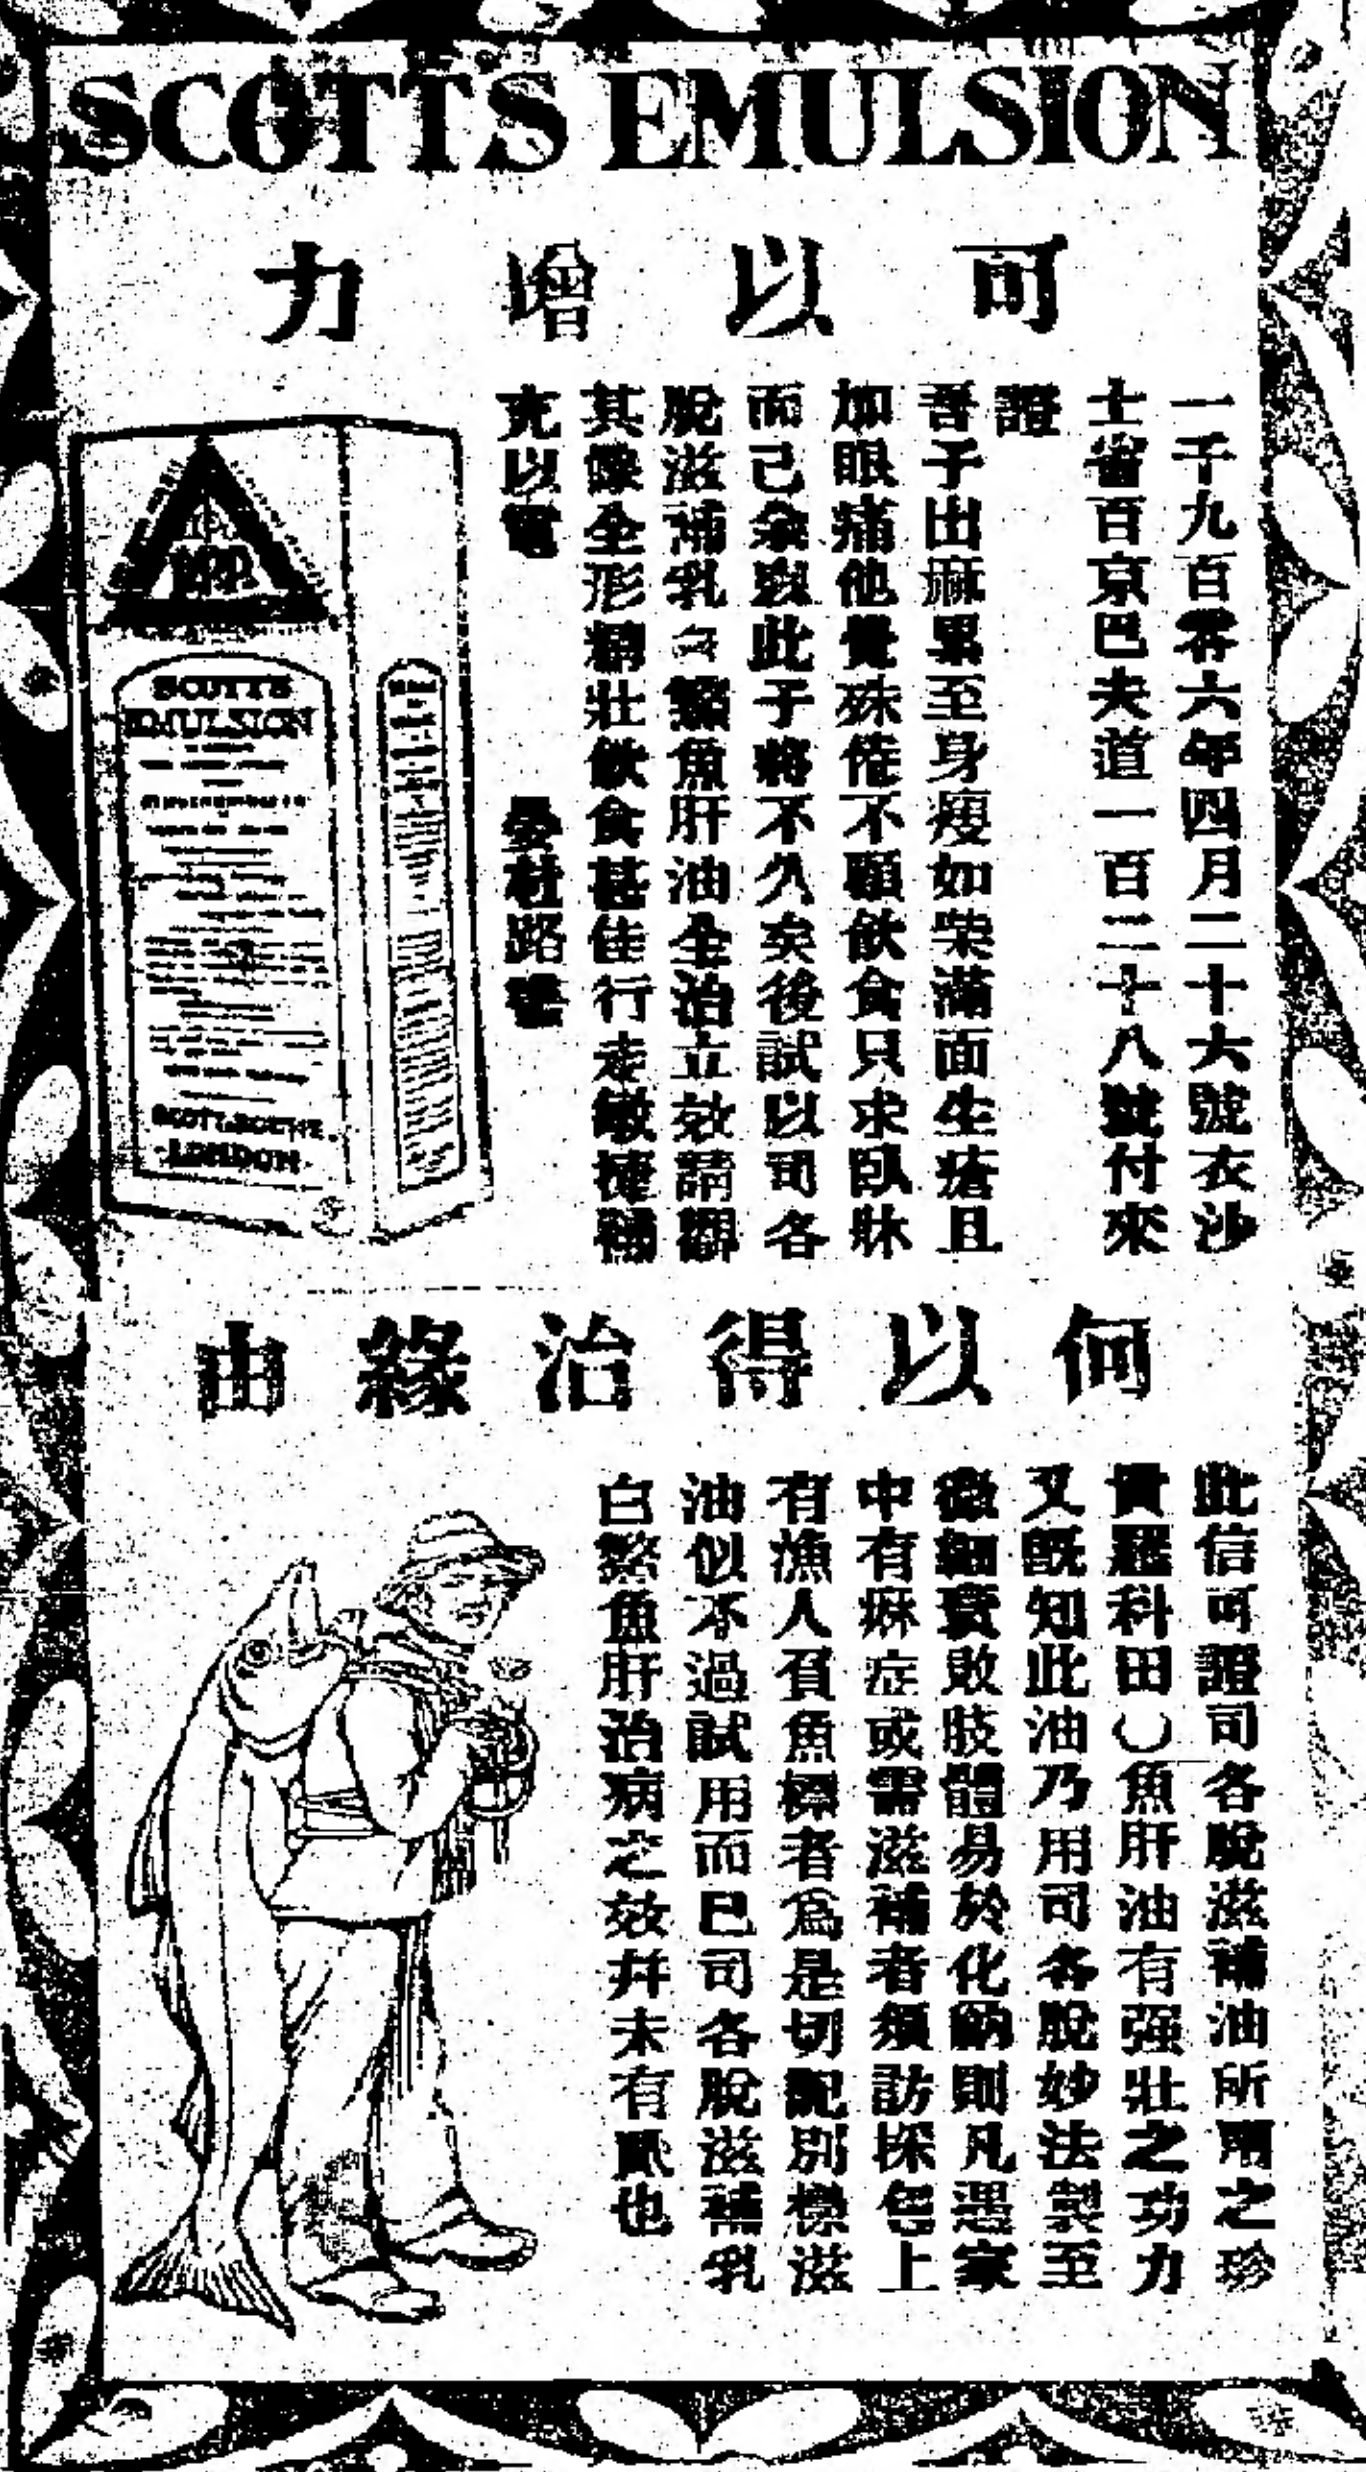 SCOTT'S EMULSION
可以增力
一千九百零六年四月二十六號衣沙
士省百京巴夫道一百二十八號付來
證
吾子出麻累至身瘦如柴滿面生瘡且
加眼痛他覺殊倦不願飲食只求臥牀
而已余以此子將不久矣後試以司各
脫滋補乳白鰵魚肝油全治立效請觀
其像全形精壯飲食甚佳行走敏捷
克以
杜路
SCOTT'S
EMULSION
SCOTT & BOWNE
LONDON
何以得治緣由
此信可證司各脫滋補油所用之珍
貴科田魚肝油有强壯之功力
又既知此油乃用司各脫妙法製至
微細質敗肢體易於化納則凡遇家
中有痳症或需滋補者須訪探包上
有漁人負魚標者為是切記別樣滋
油似不過試用而已司各脫滋補乳
白鰵魚肝治病之效幷未有貳也